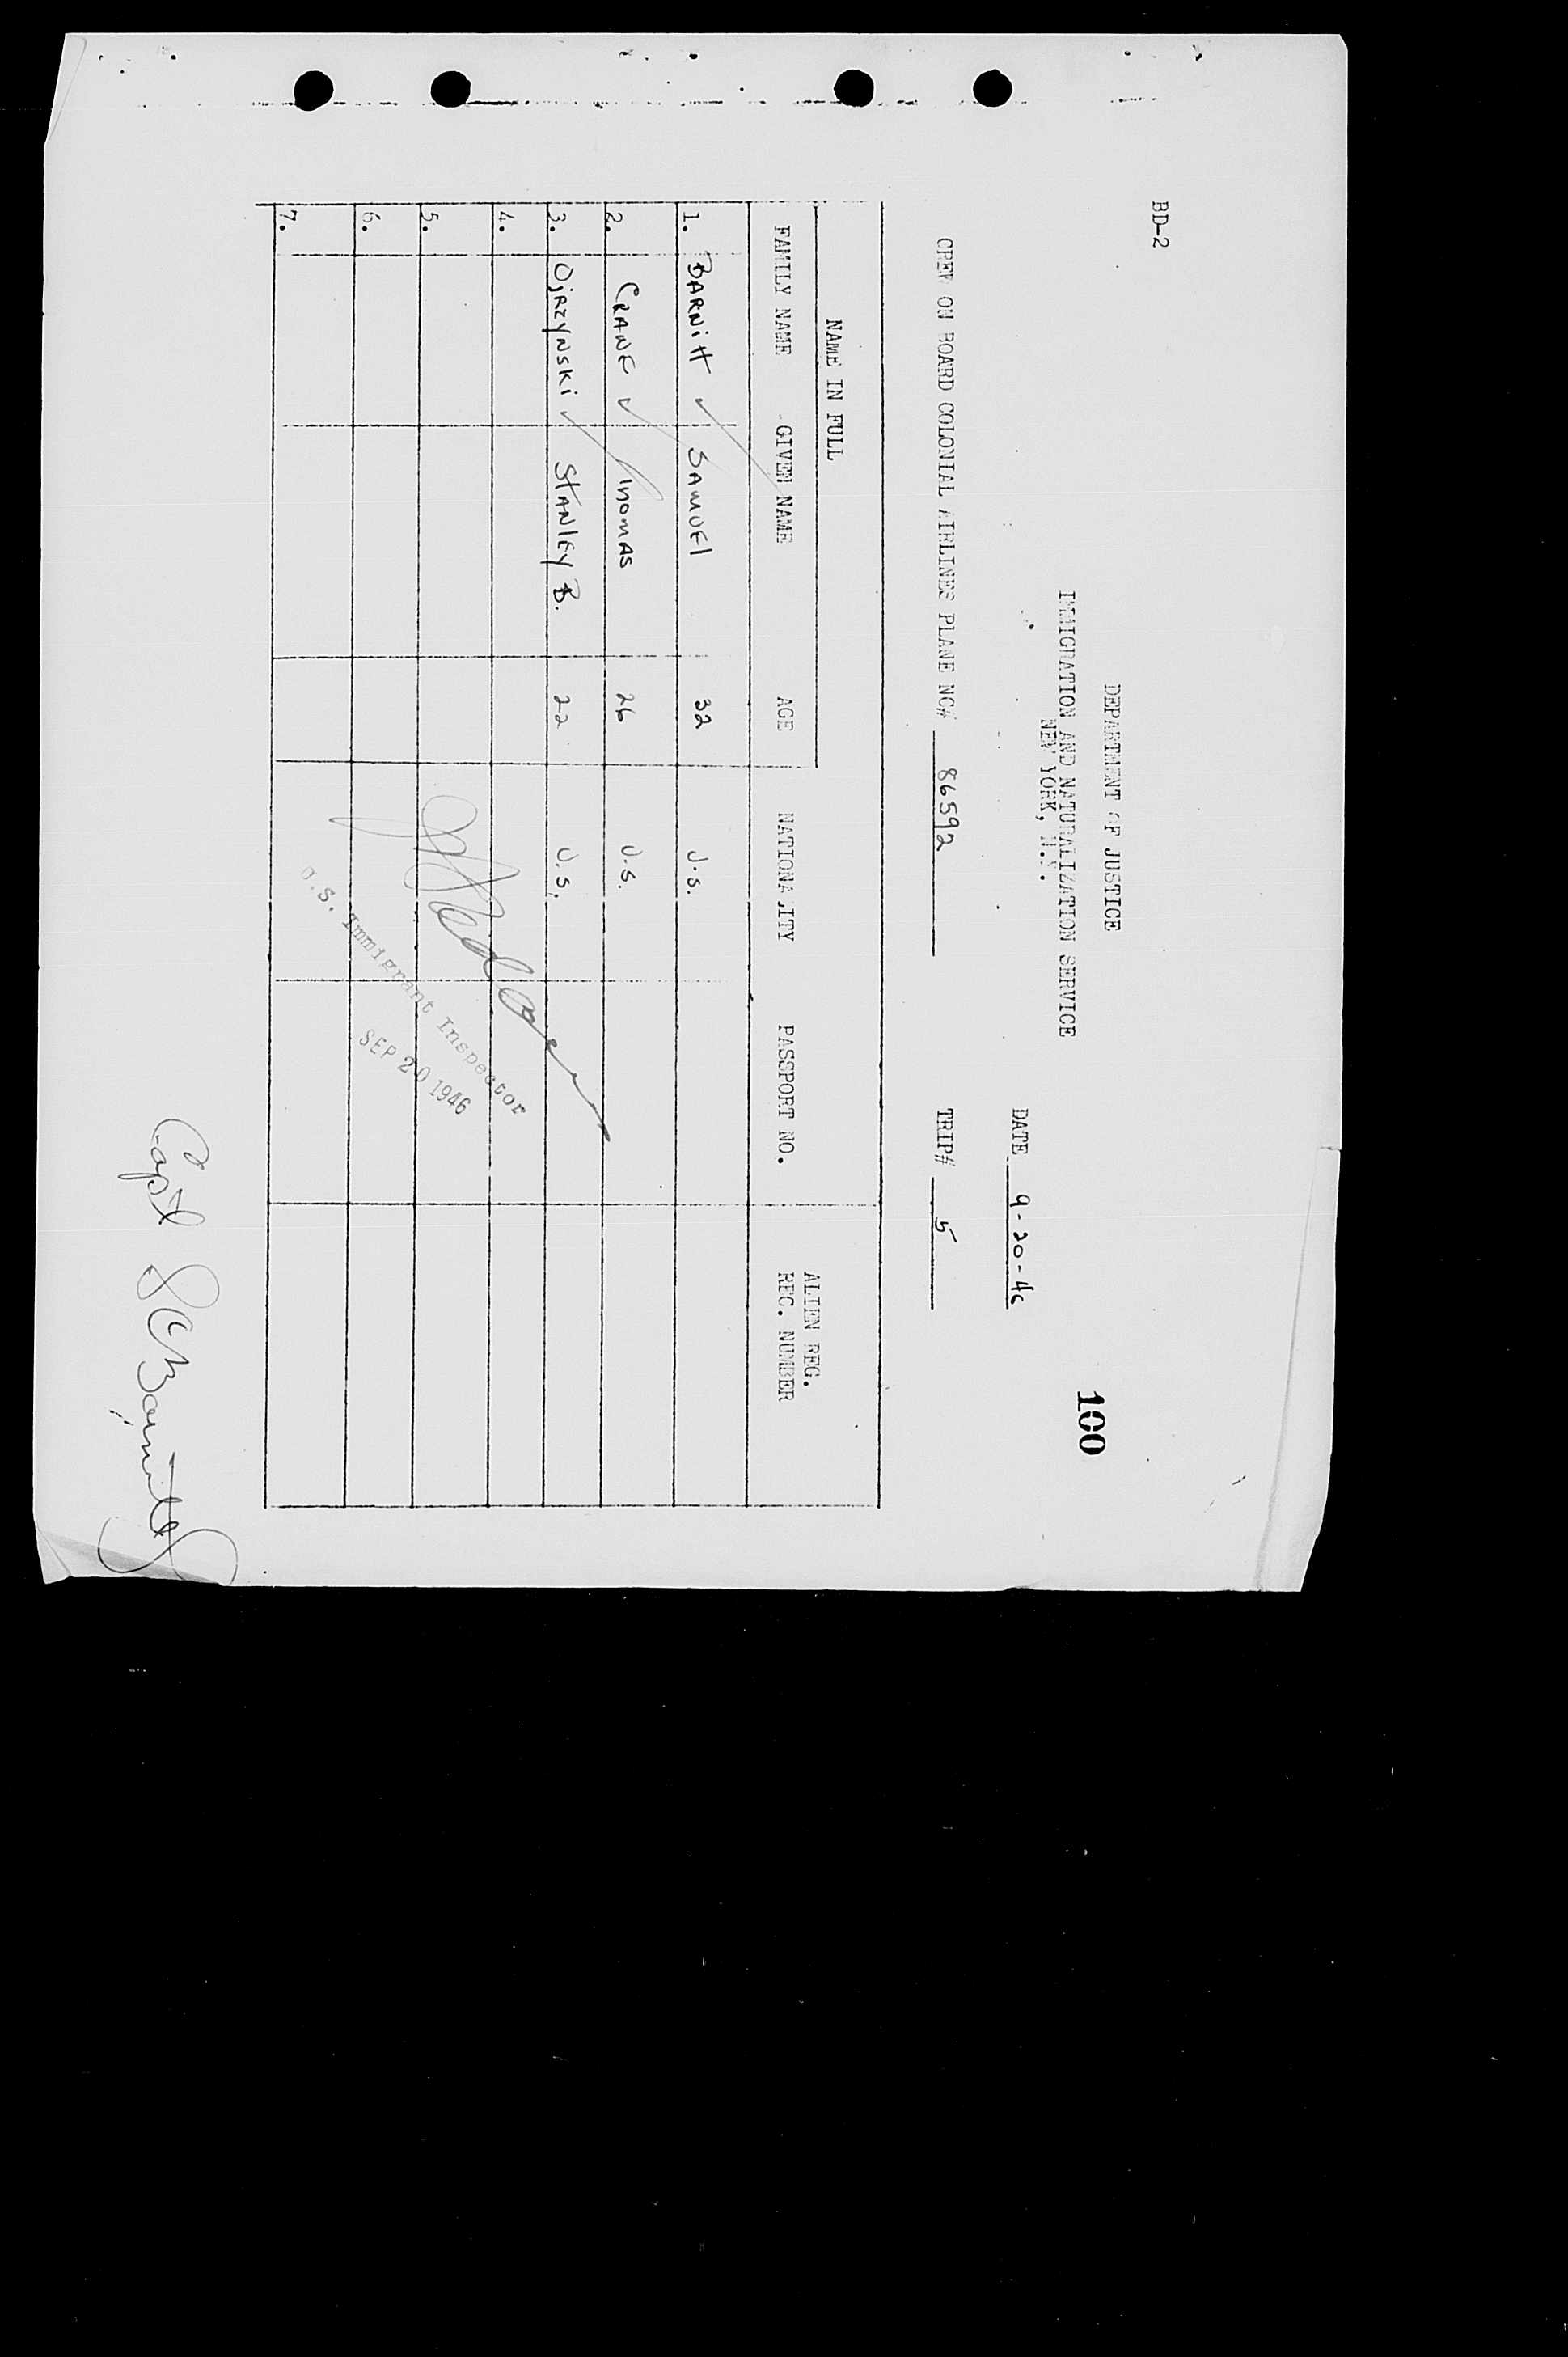 BD-2
DEPARTMENT OF JUSTICE
IMMIGRATION AND NATURALIZATION SERVICE
NEW YORK, N.Y.
100
DATE 9-20-46
CREW ON BOARD COLONIAL AIRLINES PLANE NC# 86592 TRIP# 5
NAME IN FULL
FAMILY NAME GIVEN NAME AGE NATIONALITY PASSPORT NO. ALIEN REG. REC. NUMBER
1. BARNITT ✓ SAMUEL 32 U.S.
2. CRANE ✓ THOMAS 26 U.S.
3. OJRZYNSKI ✓ STANLEY B. 22 U.S.
4.
5.
6.
7.
U.S. Immigrant Inspector
SEP 20 1946
Capt S C Barnitt